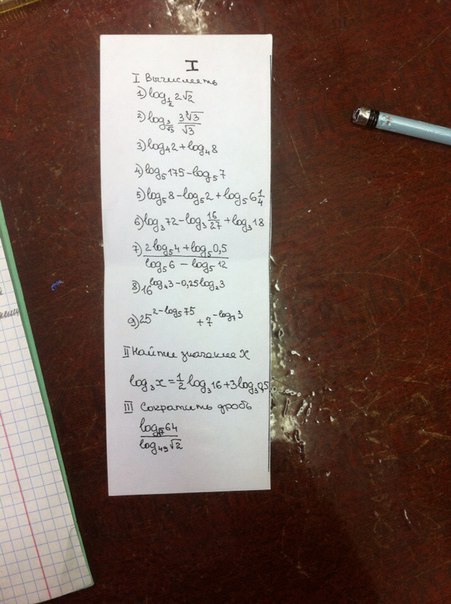 I
I Вычислить
1) log_{1/2} 2√2
3) log_4 2 + log_4 8
4) log_5 175 - log_5 7
5) log_5 8 - log_5 2 + log_5 6 1/4
6) log_3 72 - log_3 16/27 + log_3 18
7) (2log_5 4 + log_5 0,5) / (log_5 6 - log_5 12)
8) 16^{log_4 3 - 0,25log_2 3}
9) 25^{2 - log_5 75} + 7^{-log_7 3}
II Найти значение X
log_3 x = 1/2 log_3 16 + 3log_3 0,5
III Сократить дробь
64
log_{49} √2